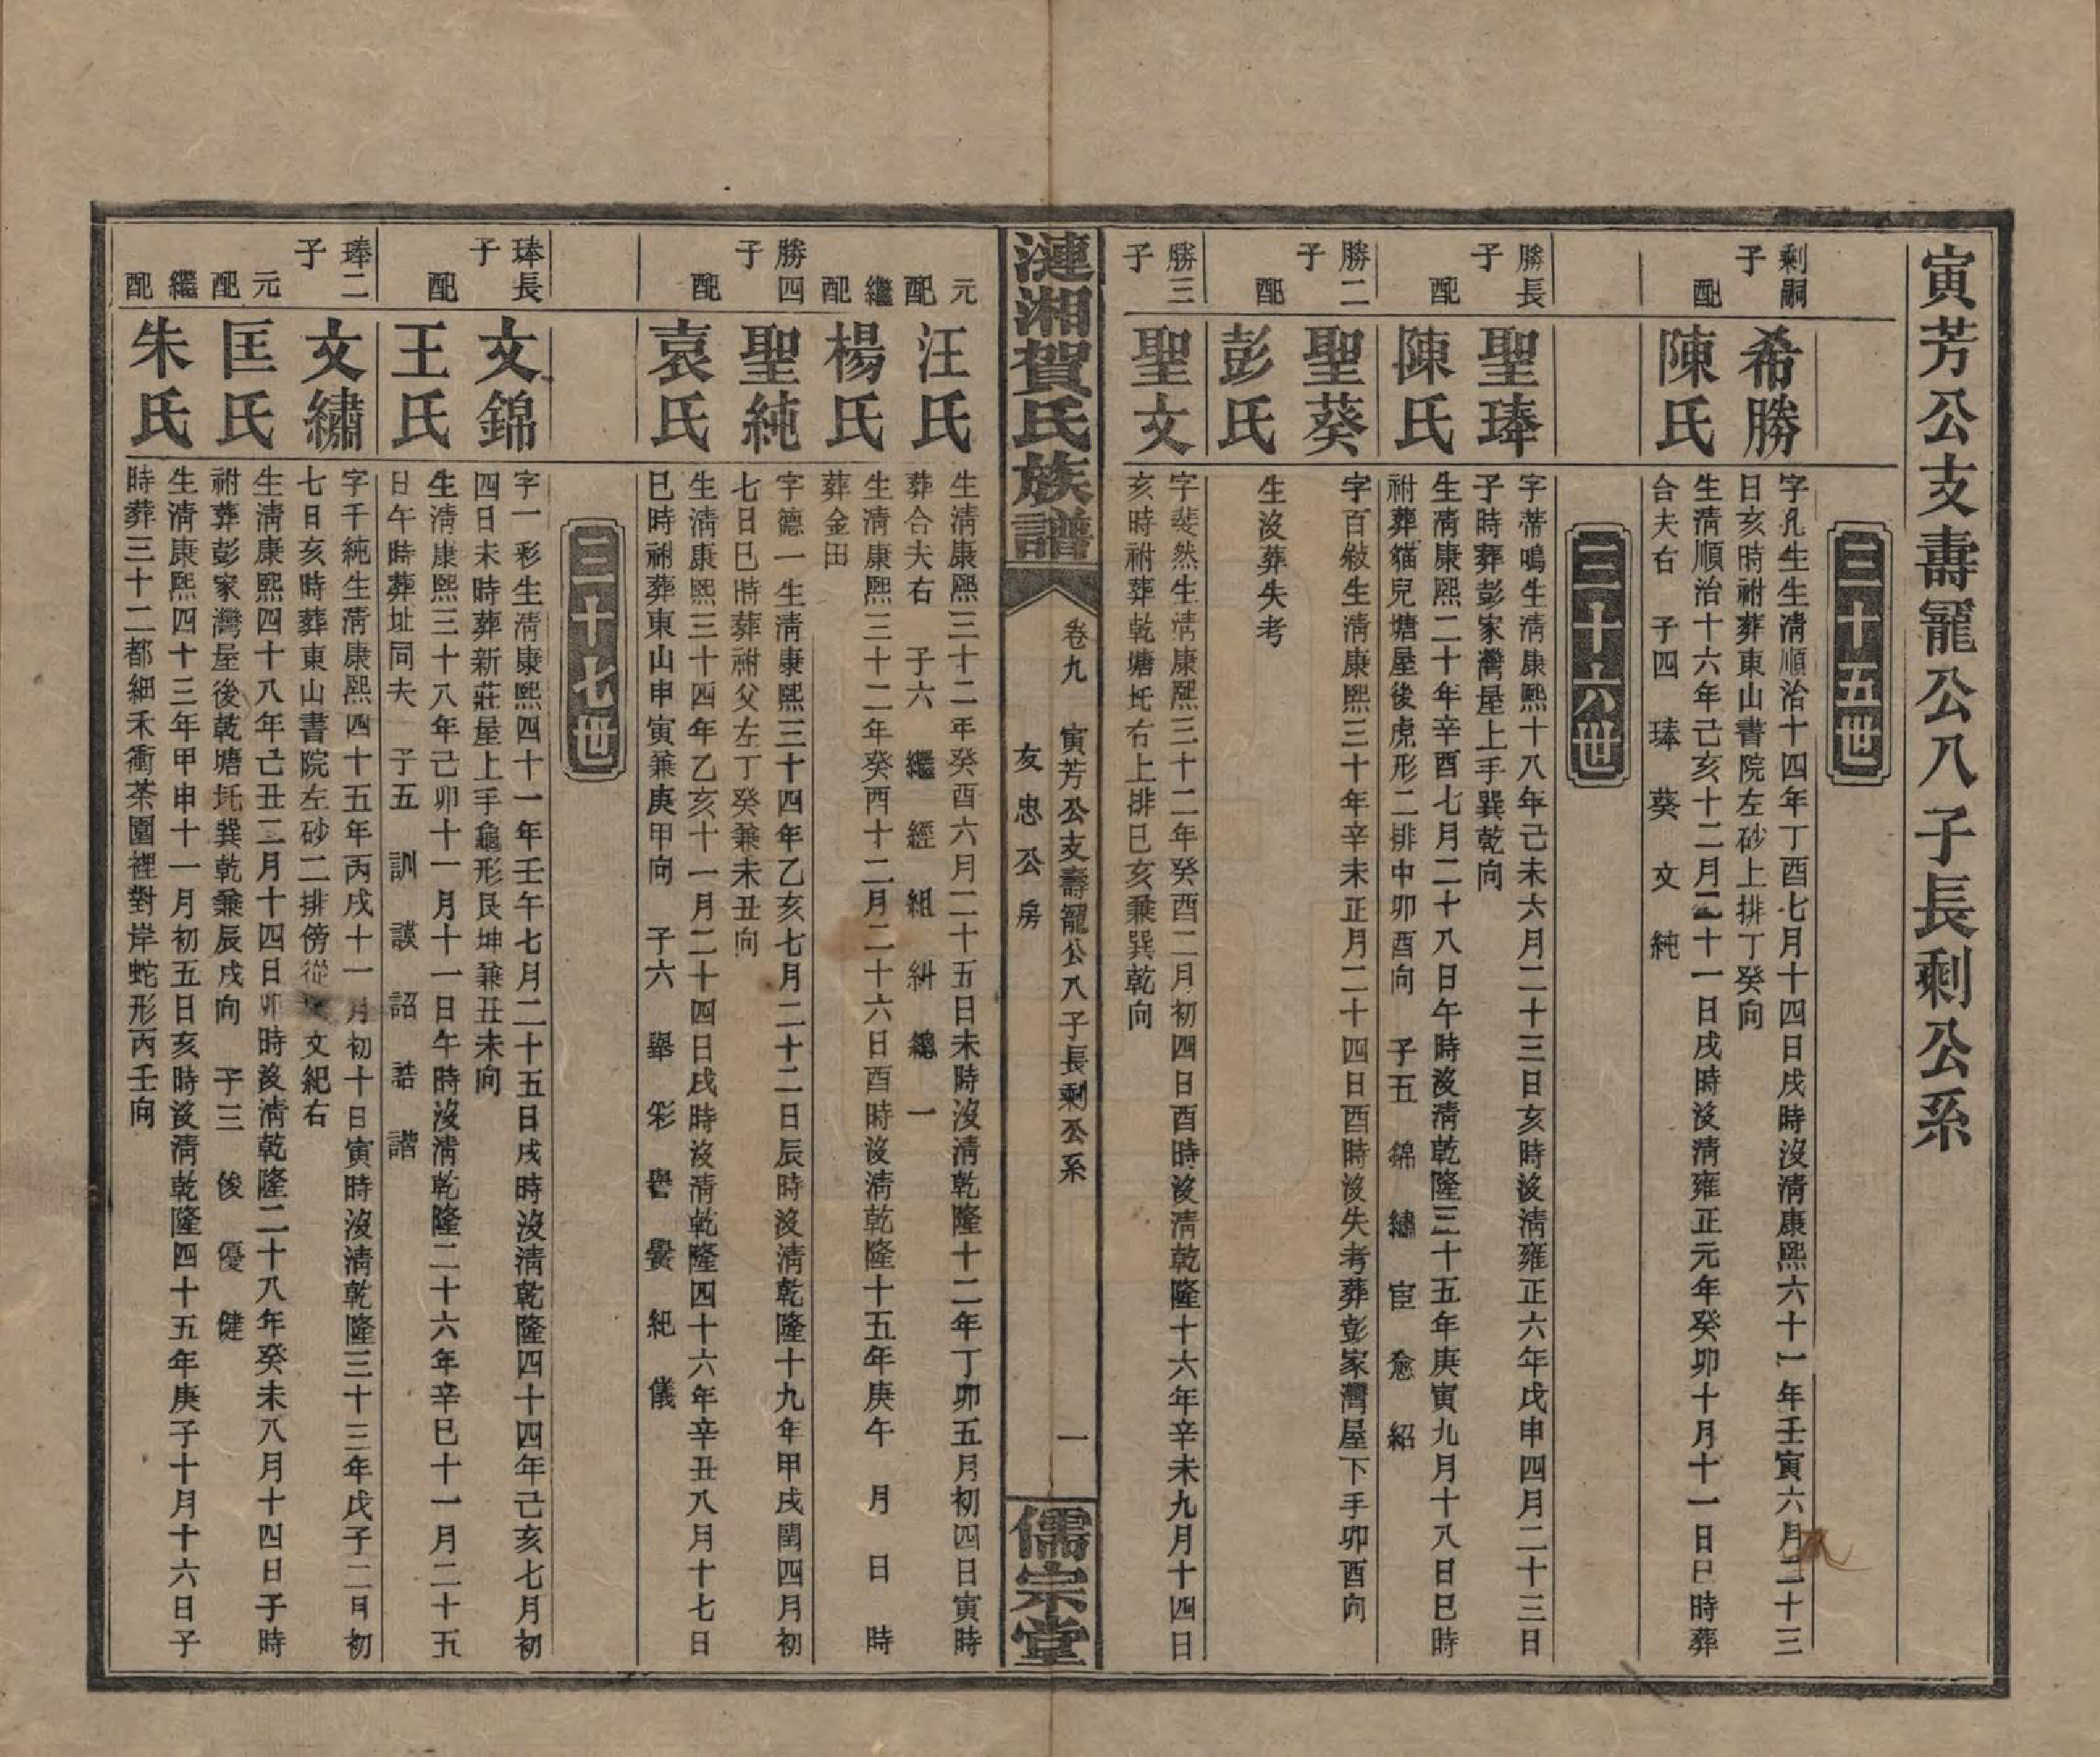 寅芳公支壽寵公八子長剩公系
三十五世
剩嗣子
希勝
字凡生生清順治十四年丁酉七月十四日戌時沒清康熙六十一年壬寅六月二十三
日亥時祔葬東山書院左砂上排丁癸向
配
陳氏
生清順治十六年己亥十二月二十一日戌時沒清雍正元年癸卯十月十一日巳時葬
合夫右 子四 琫 葵 文 純
三十六世
勝長子
聖琫
字蒂鳴生清康熙十八年己未六月二十三日亥時沒清雍正六年戊申四月二十三日
子時葬彭家灣屋上手巽乾向
配
陳氏
生清康熙二十年辛酉七月二十八日午時沒清乾隆三十五年庚寅九月十八日巳時
祔葬貓兒塘屋後虎形二排中卯酉向 子五 錦 繡 宦 愈 紹
勝二子
聖葵
字百敍生清康熙三十年辛未正月二十四日酉時沒失考葬彭家灣屋下手卯酉向
配
彭氏
生沒葬失考
勝三子
聖文
字斐然生清康熙三十二年癸酉二月初四日酉時沒清乾隆十六年辛未九月十四日
亥時祔葬乾塘坵右上排巳亥兼巽乾向
漣湘賀氏族譜
卷九 寅芳公支壽寵公八子長剩公系
友忠公房
一
儒宗堂
元配
汪氏
生清康熙三十二年癸酉六月二十五日未時沒清乾隆十二年丁卯五月初四日寅時
葬合夫右 子六 繼 經 組 糾 總 一
繼配
楊氏
生清康熙三十二年癸酉十二月二十六日酉時沒清乾隆十五年庚午 月 日 時
葬金田
勝四子
聖純
字德一生清康熙三十四年乙亥七月二十二日辰時沒清乾隆十九年甲戌閏四月初
七日巳時葬祔父左丁癸兼未丑向
配
袁氏
生清康熙三十四年乙亥十一月二十四日戌時沒清乾隆四十六年辛丑八月十七日
巳時祔葬東山申寅兼庚甲向 子六 舉 彩 譽 黌 紀 儀
三十七世
琫長子
文錦
字一彩生清康熙四十一年壬午七月二十五日戌時沒清乾隆四十四年己亥七月初
四日未時葬新莊屋上手龜形艮坤兼丑未向
配
王氏
生清康熙三十八年己卯十一月十一日午時沒清乾隆二十六年辛巳十一月二十五
日午時葬址同夫 子五 訓 謨 詔 誥 諧
琫二子
文繡
字千純生清康熙四十五年丙戌十一月初十日寅時沒清乾隆三十三年戊子二月初
七日亥時葬東山書院左砂二排傍從文紀右
元配
匡氏
生清康熙四十八年己丑二月十四日卯時沒清乾隆二十八年癸未八月十四日子時
祔葬彭家灣屋後乾塘坵巽乾兼辰戌向 子三 俊 優 健
繼配
朱氏
生清康熙四十三年甲申十一月初五日亥時沒清乾隆四十五年庚子十月十六日子
時葬三十二都細禾衝茶園裡對岸蛇形丙壬向